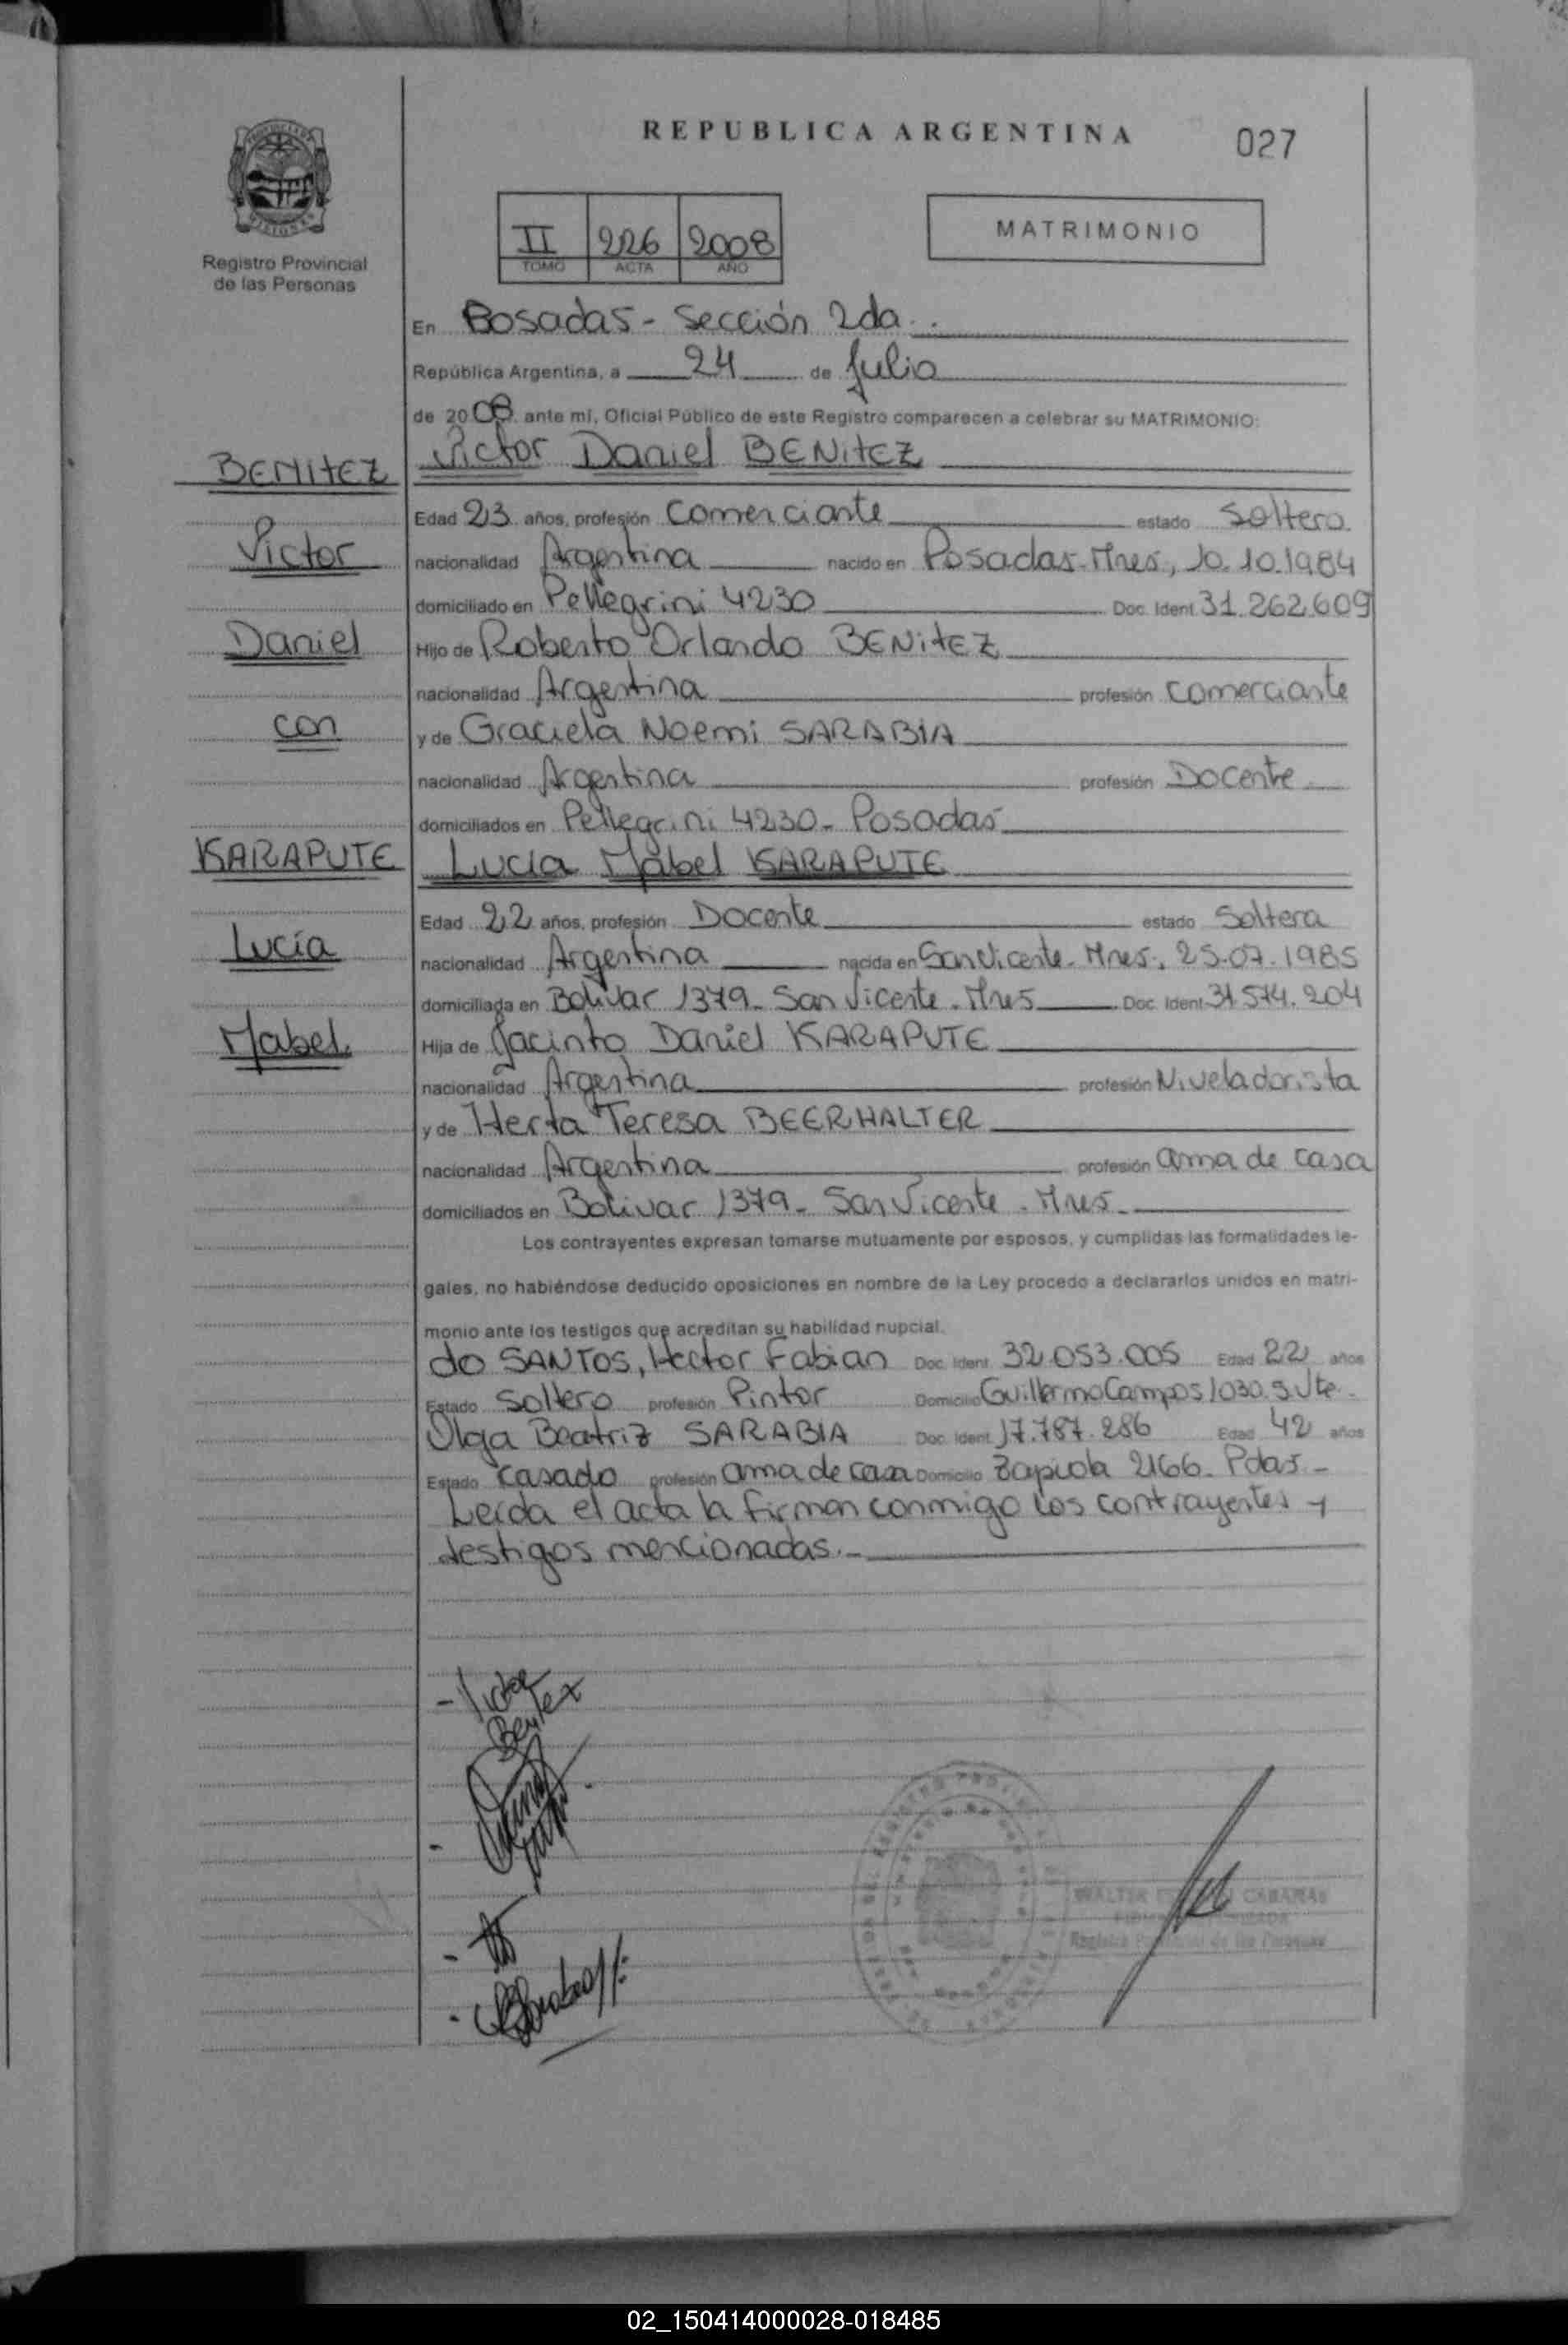 REPUBLICA ARGENTINA
027
Registro Provincial
de las Personas
II 226 2008
TOMO ACTA AÑO
MATRIMONIO
En Posadas - Sección 2da.
República Argentina, a 24 de Julio
de 2008 ante mí, Oficial Público de este Registro comparecen a celebrar su MATRIMONIO:
BENITEZ
Victor
Daniel
con
KARAPUTE
Lucía
Mabel
Victor Daniel BENITEZ
Edad 23 años, profesión Comerciante estado Soltero
nacionalidad Argentina nacido en Posadas-Mnes, 10.10.1984
domiciliado en Pellegrini 4230 Doc. Ident. 31.262.609
Hijo de Roberto Orlando BENITEZ
nacionalidad Argentina profesión Comerciante
y de Graciela Noemi SARABIA
nacionalidad Argentina profesión Docente
domiciliados en Pellegrini 4230 - Posadas
Lucía Mabel KARAPUTE
Edad 22 años, profesión Docente estado Soltera
nacionalidad Argentina nacida en San Vicente - Mnes, 25.07.1985
domiciliada en Bolivar 1379 - San Vicente - Mnes Doc. Ident. 31.574.204
Hija de Jacinto Daniel KARAPUTE
nacionalidad Argentina profesión Niveladorista
y de Herta Teresa BEERHALTER
nacionalidad Argentina profesión ama de casa
domiciliados en Bolivar 1379 - San Vicente - Mnes -
Los contrayentes expresan tomarse mutuamente por esposos, y cumplidas las formalidades le-
gales, no habiéndose deducido oposiciones en nombre de la Ley procedo a declararlos unidos en matri-
monio ante los testigos que acreditan su habilidad nupcial.
do SANTOS, Hector Fabian Doc. Ident. 32.053.005 Edad 22 años
Estado Soltero profesión Pintor Domicilio Guillermo Campos 1030. S. Vte.
Olga Beatriz SARABIA Doc. Ident. 17.787.286 Edad 42 años
Estado Casado profesión ama de casa Domicilio Zapiola 2166 - Pdas. -
Leída el acta la firman conmigo los contrayentes y
testigos mencionadas. -
- Victor
Benitez
WALTER CABAÑAS
Registro Provincial de las Personas
02_150414000028-018485